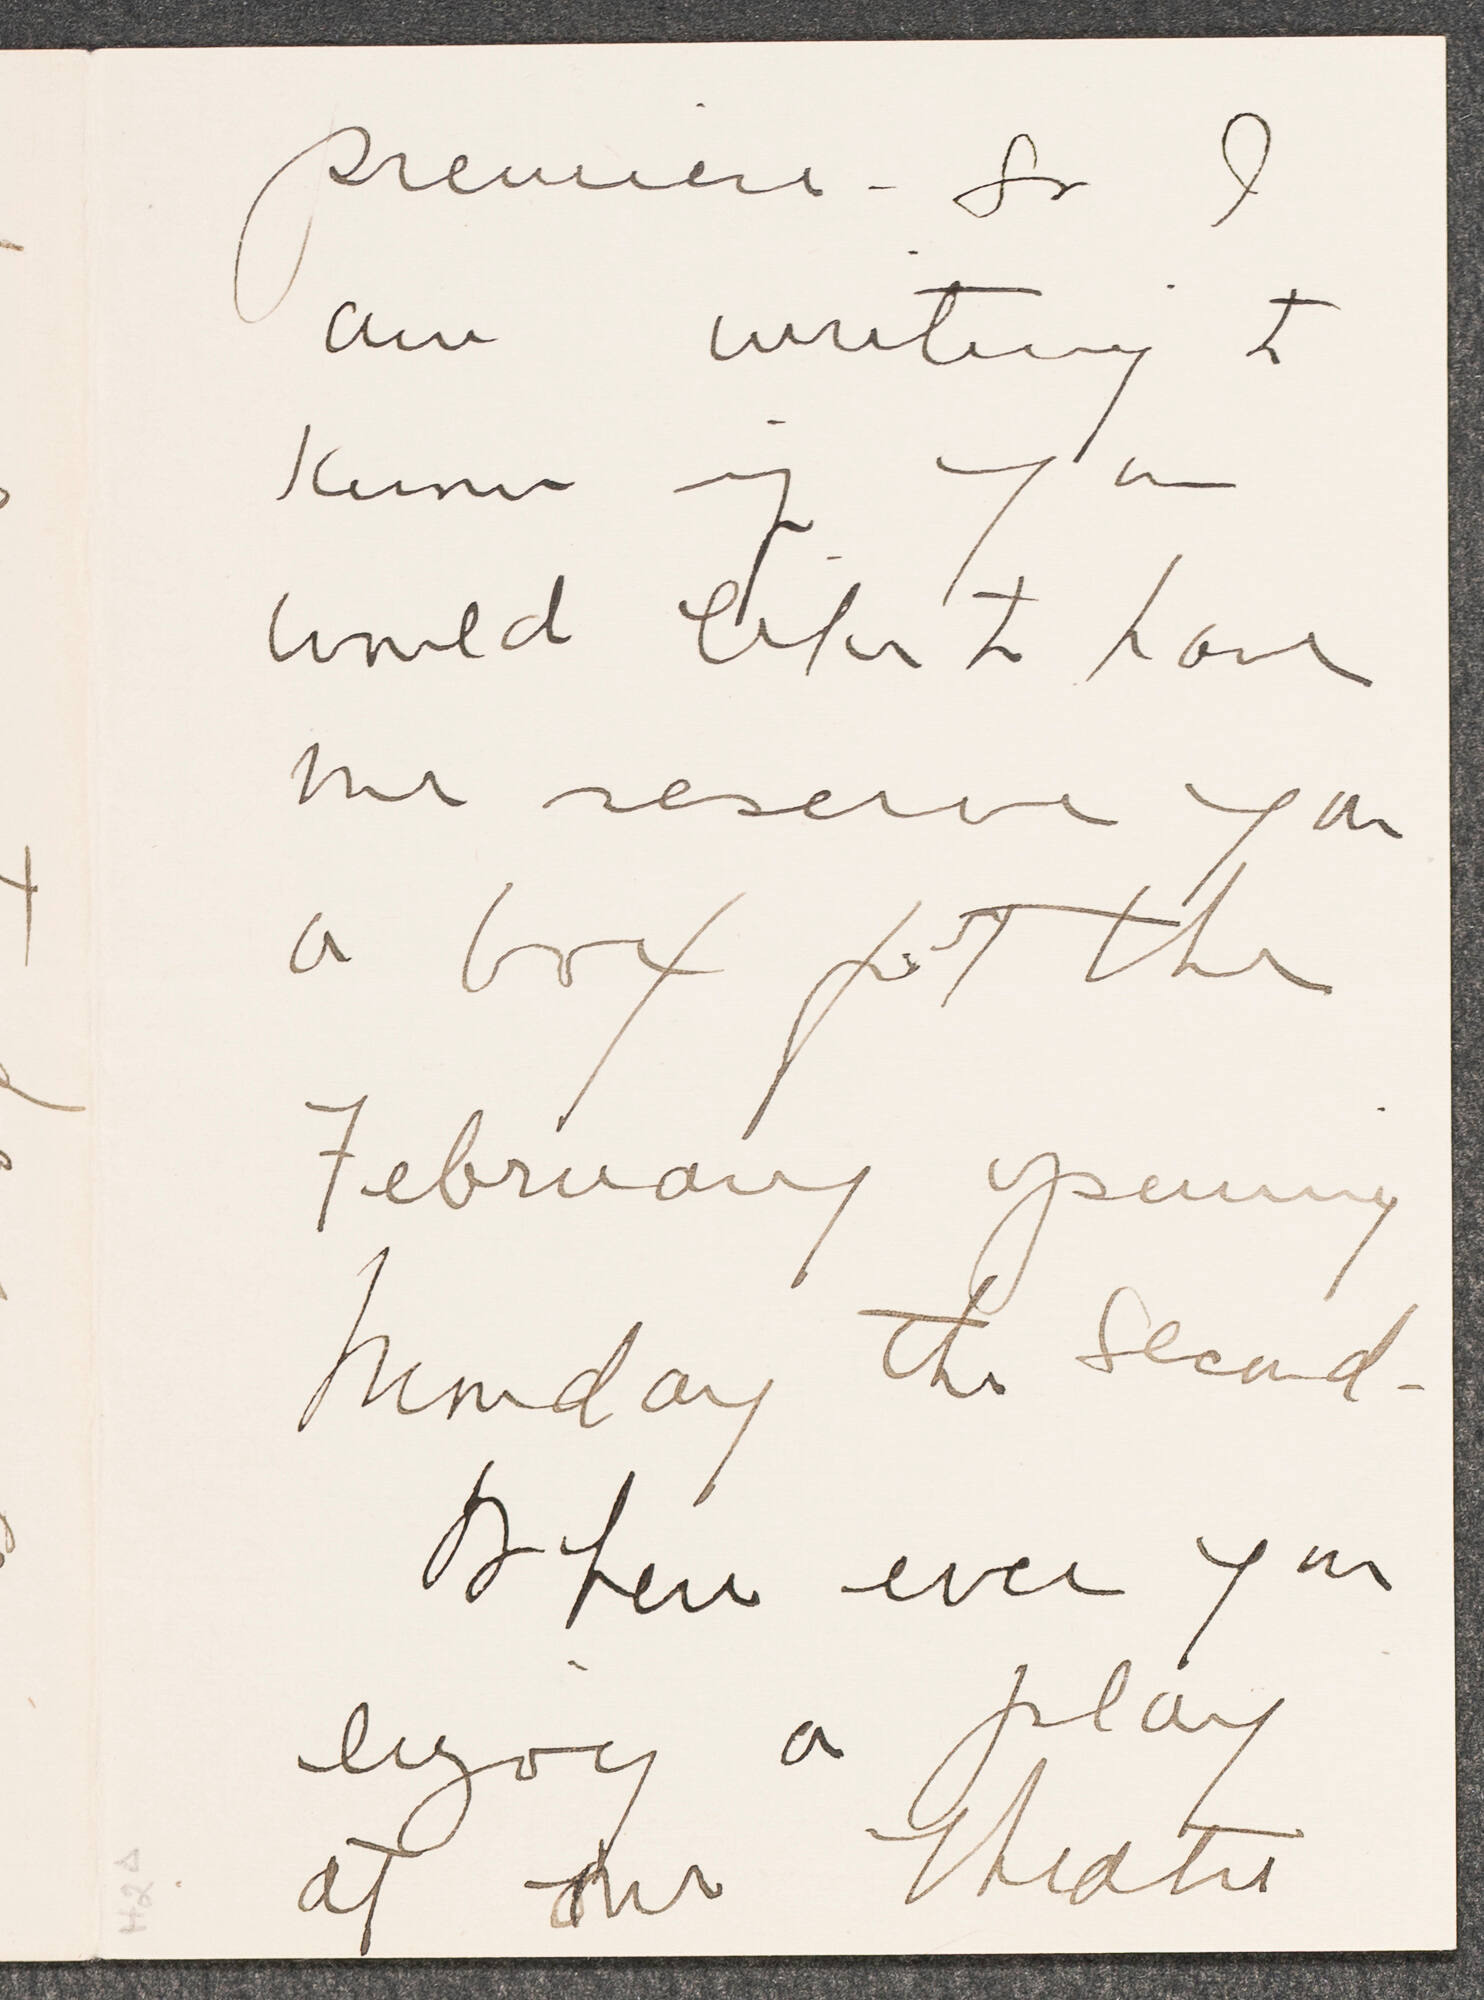 premiere - So I
am writing to
know if you
would like to have
me reserve you
a box for the
February opening
Monday the Second -
When ever you
enjoy a play
at our Theatre